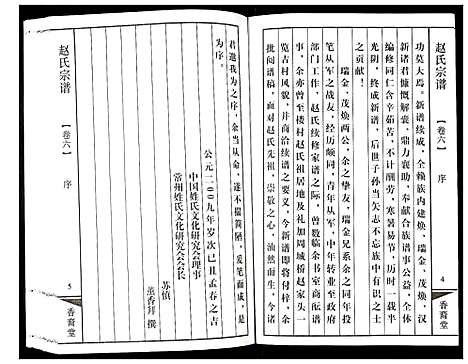 赵氏宗谱
【卷六】
序
4
香裔堂
功莫大焉。新谱续成，全赖族内建焕、瑞金、茂焕、汉
新诸君慷慨解囊，鼎力襄助，奉献合族谱事公益，全体
编修同仁含辛茹苦，不计酬劳，寒暑易节，历时一载半
光阴，终成新谱，后世子孙当矢志不忘前有识之士
之贡献！
瑞金、茂焕两公，余之挚友，瑞金兄系余之同年投
笔从军之战友，经历颇同，青年从军，中年转业至政府
部门工作，赵氏续修家谱之际，曾数临余书室商酝谱
事，余亦曾至楼村赵氏祖居地及礼加周城桥赵家头一
览古村风貌，并商洽续谱之要义，今新谱即将付梓，余
批阅谱稿，面对赵氏先祖，崇敬之心，油然而生，今诸
君邀我为之序，余当从命，遂不揣简陋，爰笔而成，是
为序。
公元二〇〇九年岁次已丑孟春之吉
中国姓氏文化研究会理事
常州姓氏文化研究会会长
苏慎
薰香拜撰
赵氏宗谱
【卷六】
序
5
香裔堂